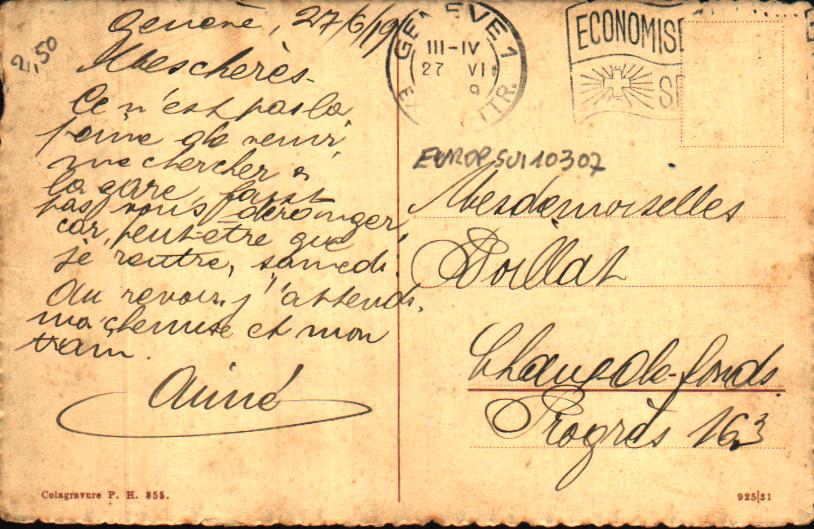 Genève, 27/6/19
2,50
Mes chères.
Ce n'est pas la
peine de venir,
me chercher à
la gare, faut
pas vous déranger,
car, peut-être que
je rentre, samedi.
Au revoir, j'attends,
ma chemise et mon
train.
Aimé
GENÈVE 1
III-IV
27 VI
9
TTR.
ECONOMISE
EUROP SUI 10307
Mesdemoiselles
Doillat
Chaux-de-fonds.
Progrès 163
Colagravure P. H. 855.
925|31